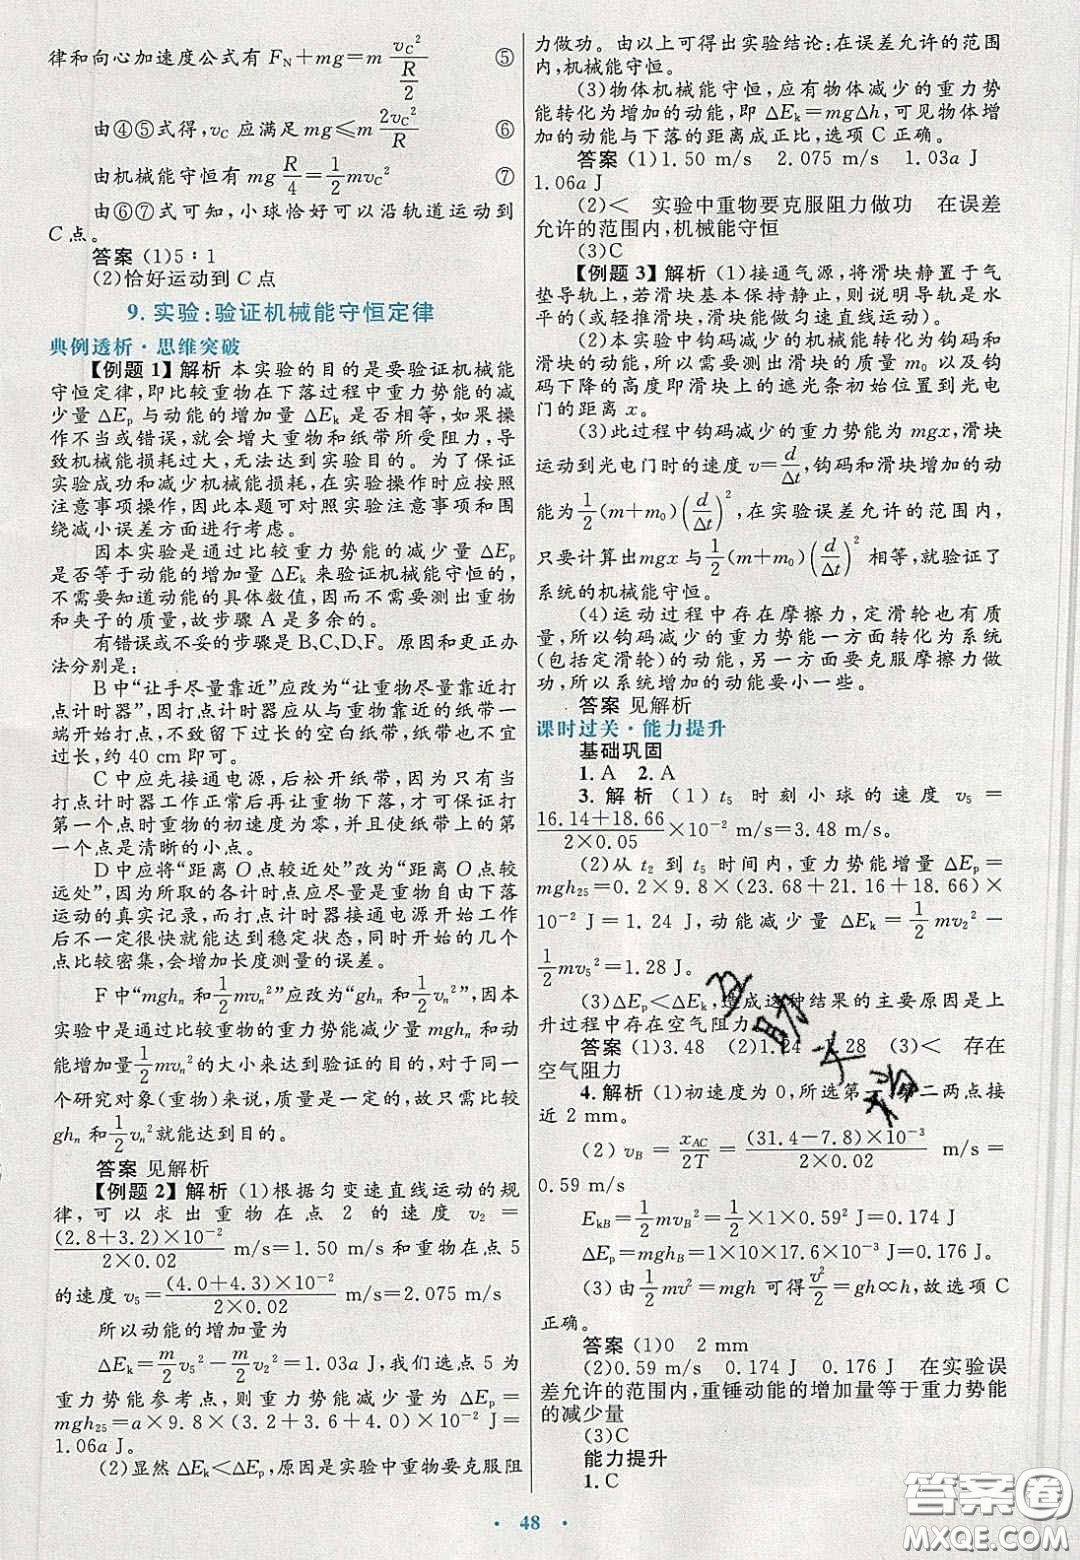 律和向心加速度公式有 F_N＋mg＝m v_C²/(R/2) ⑤
由④⑤式得,v_C 应满足 mg≤m 2v_C²/R ⑥
由机械能守恒有 mg R/4＝1/2 mv_C² ⑦
由⑥⑦式可知,小球恰好可以沿轨道运动到
C点。
答案 (1)5∶1
(2)恰好运动到C点
9. 实验:验证机械能守恒定律
典例透析·思维突破
【例题1】解析 本实验的目的是要验证机械能
守恒定律,即比较重物在下落过程中重力势能的减
少量 ΔE_p 与动能的增加量 ΔE_k 是否相等,如果操
作不当或错误,就会增大重物和纸带所受阻力,导
致机械能损耗过大,无法达到实验目的。为了保证
实验成功和减少机械能损耗,在实验操作时应按照
注意事项操作,因此本题可对照实验注意事项和围
绕减小误差方面进行考虑。
因本实验是通过比较重力势能的减少量 ΔE_p
是否等于动能的增加量 ΔE_k 来验证机械能守恒的,
不需要知道动能的具体数值,因而不需要测出重物
和夹子的质量,故步骤 A 是多余的。
有错误或不妥的步骤是B、C、D、F。原因和更正办
法分别是:
B 中“让手尽量靠近”应改为“让重物尽量靠近打
点计时器”,因打点计时器应从与重物靠近的纸带一
端开始打点,不致留下过长的空白纸带,纸带也不宜
过长,约 40 cm 即可。
C 中应先接通电源,后松开纸带,因为当
打点计时器工作正常后再让重物下落,才可保证打
第一个点时重物的初速度为零,并且使纸带上的第
一个点是清晰的小点。
D 中应将“距离 O 点较近处”改为“距离 O 点较
远处”,因为所取的各计时点应尽量是重物自由下落
运动的真实记录,而打点计时器接通电源开始工作
后不一定很快就能达到稳定状态,同时开始的几个
点比较密集,会增加长度测量的误差。
F 中“mgh_n 和 1/2 mv_n²”应改为“gh_n 和 1/2 v_n²”,因本
实验中是通过比较重物的重力势能减少量 mgh_n 和动
能增加量 1/2 mv_n² 的大小来达到验证的目的,对于同一
个研究对象(重物)来说,质量是一定的,故只需比较
gh_n 和 1/2 v_n² 就能达到目的。
答案 见解析
【例题2】解析 (1)根据匀变速直线运动的规
律,可以求出重物在点 2 的速度 v₂＝
(2.8＋3.2)×10⁻²/(2×0.02) m/s＝1.50 m/s 和重物在点 5
的速度 v₅＝(4.0＋4.3)×10⁻²/(2×0.02) m/s＝2.075 m/s
所以动能的增加量为
ΔE_k＝m/2 v₅²－m/2 v₂²＝1.03a J,我们选点 5 为
重力势能参考点,则重力势能减少量为 ΔE_p＝
mgh₂₅＝a×9.8×(3.2＋3.6＋4.0)×10⁻² J＝
1.06a J。
(2)显然 ΔE_k＜ΔE_p,原因是实验中重物要克服阻
力做功。由以上可得出实验结论:在误差允许的范围
内,机械能守恒。
(3)物体机械能守恒,应有物体减少的重力势
能转化为增加的动能,即 ΔE_k＝mgΔh,可见物体增
加的动能与下落的距离成正比,选项 C 正确。
答案 (1)1.50 m/s 2.075 m/s 1.03a J
1.06a J
(2)＜ 实验中重物要克服阻力做功 在误差
允许的范围内,机械能守恒
(3)C
【例题3】解析 (1)接通气源,将滑块静置于气
垫导轨上,若滑块基本保持静止,则说明导轨是水
平的(或轻推滑块,滑块能做匀速直线运动)。
(2)本实验中钩码减少的机械能转化为钩码和
滑块的动能,所以需要测出滑块的质量 m₀ 以及钩
码下降的高度即滑块上的遮光条初始位置到光电
门的距离 x。
(3)此过程中钩码减少的重力势能为 mgx,滑块
运动到光电门时的速度 v＝d/Δt,钩码和滑块增加的动
能为 1/2 (m＋m₀)(d/Δt)²,在实验误差允许的范围内,
只要计算出mgx 与 1/2 (m＋m₀)(d/Δt)² 相等,就验证了
系统的机械能守恒。
(4)运动过程中存在摩擦力,定滑轮也有质
量,所以钩码减少的重力势能一方面转化为系统
(包括定滑轮)的动能,另一方面要克服摩擦力做
功,所以系统增加的动能要小一些。
答案 见解析
课时过关·能力提升
基础巩固
1. A 2. A
3. 解析 (1) t₅ 时刻小球的速度 v₅＝
(16.14＋18.66)/(2×0.05)×10⁻² m/s＝3.48 m/s。
(2)从 t₂ 到 t₅ 时间内,重力势能增量 ΔE_p＝
mgh₂₅＝0.2×9.8×(23.68＋21.16＋18.66)×
10⁻² J＝1.24 J,动能减少量 ΔE_k＝1/2 mv₂²－
1/2 mv₅²＝1.28 J。
(3)ΔE_p＜ΔE_k,造成这种结果的主要原因是上
升过程中存在空气阻力
答案 (1)3.48 (2)1.24 1.28 (3)＜ 存在
空气阻力
4. 解析 (1)初速度为 0,所选第一、第二两点接
近 2 mm。
(2) v_B＝x_AC/2T＝(31.4－7.8)×10⁻³/(2×0.02) m/s＝
0.59 m/s
E_kB＝1/2 mv_B²＝1/2×1×0.59² J＝0.174 J
ΔE_p＝mgh_B＝1×10×17.6×10⁻³ J＝0.176 J。
(3)由 1/2 mv²＝mgh 可得 v²/2＝gh∝h,故选项 C
正确。
答案 (1)0 2 mm
(2)0.59 m/s 0.174 J 0.176 J 在实验误
差允许的范围内,重锤动能的增加量等于重力势能
的减少量
(3)C
能力提升
1. C
· 48 ·
答案圈
MXQE.COM